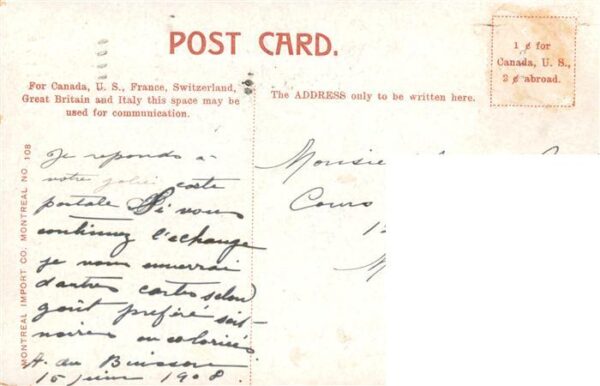 POST CARD.
1 ¢ for
Canada, U. S.,
2 ¢ abroad.
For Canada, U. S., France, Switzerland,
Great Britain and Italy this space may be
used for communication.
The ADDRESS only to be written here.
MONTREAL IMPORT CO. MONTREAL NO. 108
Je reponds a
votre jolie carte
postale Si vous
continuez l'echange
je vous enverrai
d'autres cartes selon
goût preféré soit
noires ou coloriées
A. du Buisson
15 juin 1908.
Monsie
Cours